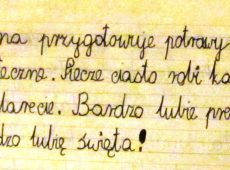 na przygotowuje potrawy
teczne. Piecze ciasto robi ka
larecie. Bardzo lubię pre
dzo lubię święta!